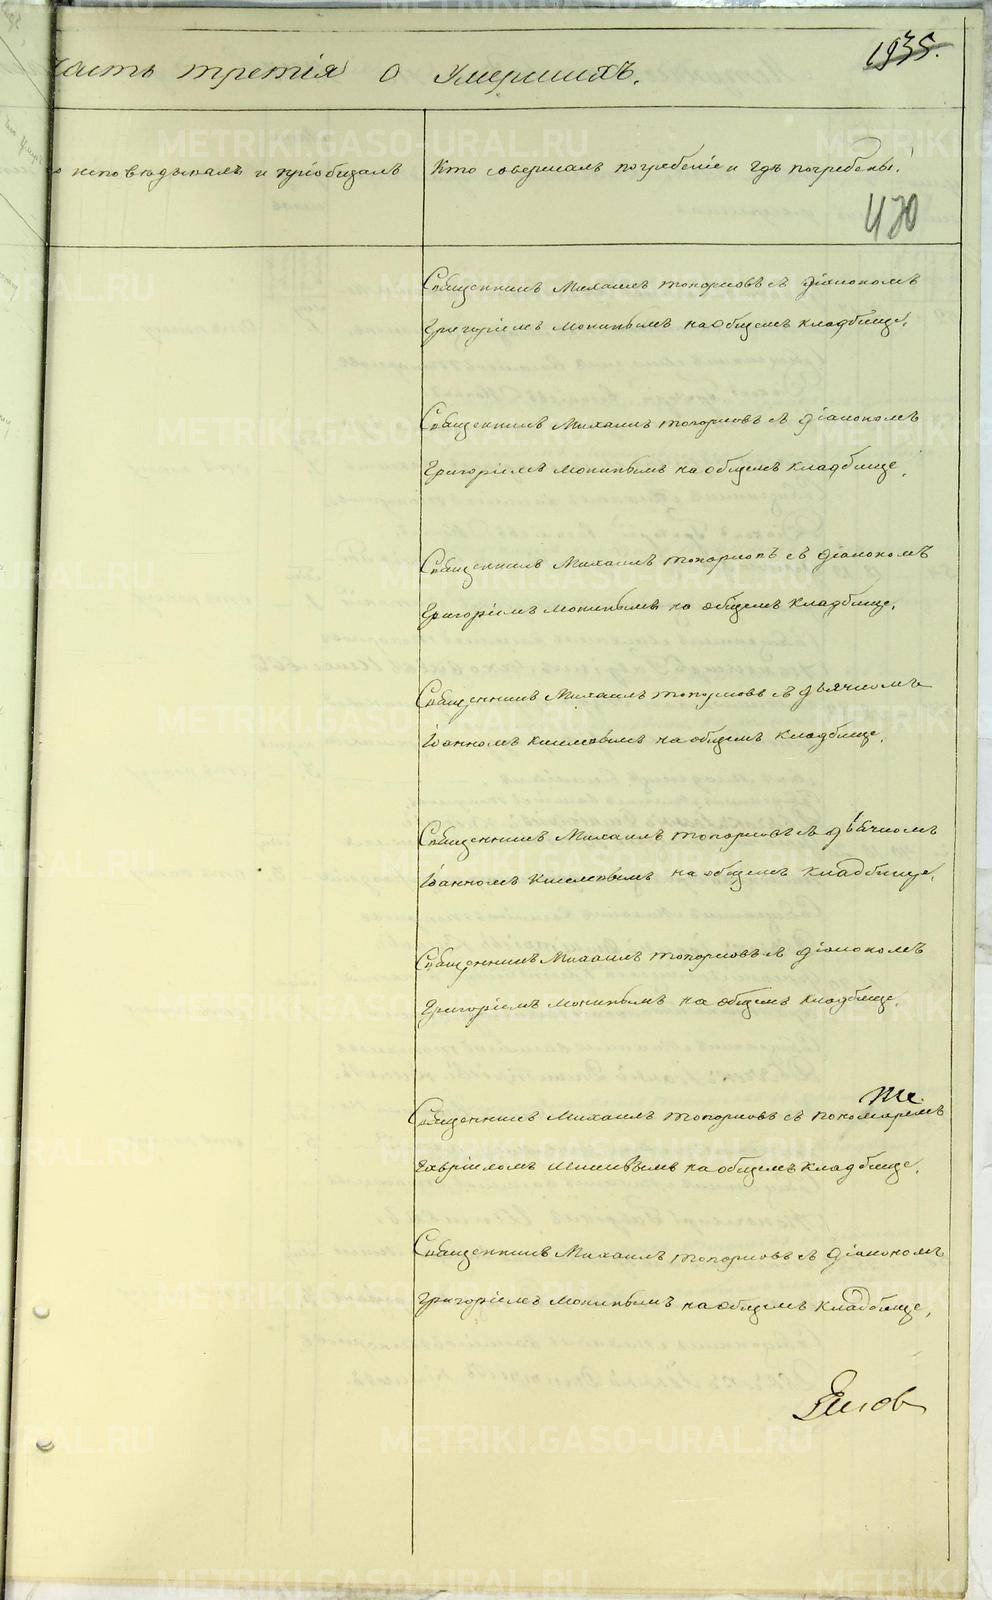 Часть третія о умершихъ.
1935.
исповѣдывалъ и пріобщалъ
Кто совершалъ погребеніе и гдѣ погребены.
470
Священникъ Михаилъ Топорковъ съ діакономъ
Григоріемъ на общемъ кладбище.
Священникъ Михаилъ Топорковъ съ діакономъ
Григоріемъ на общемъ кладбище.
Священникъ Михаилъ Топорковъ съ діакономъ
Григоріемъ на общемъ кладбище.
Священникъ Михаилъ Топорковъ съ дьячкомъ
Іоанномъ на общемъ кладбище.
Священникъ Михаилъ Топорковъ съ дьячкомъ
Іоанномъ на общемъ кладбище.
Священникъ Михаилъ Топорковъ съ діакономъ
Григоріемъ на общемъ кладбище.
Священникъ Михаилъ Топорковъ съ пономаремъ
Гавріиломъ на общемъ кладбище.
Священникъ Михаилъ Топорковъ съ діакономъ
Григоріемъ на общемъ кладбище.
METRIKI.GASO-URAL.RU